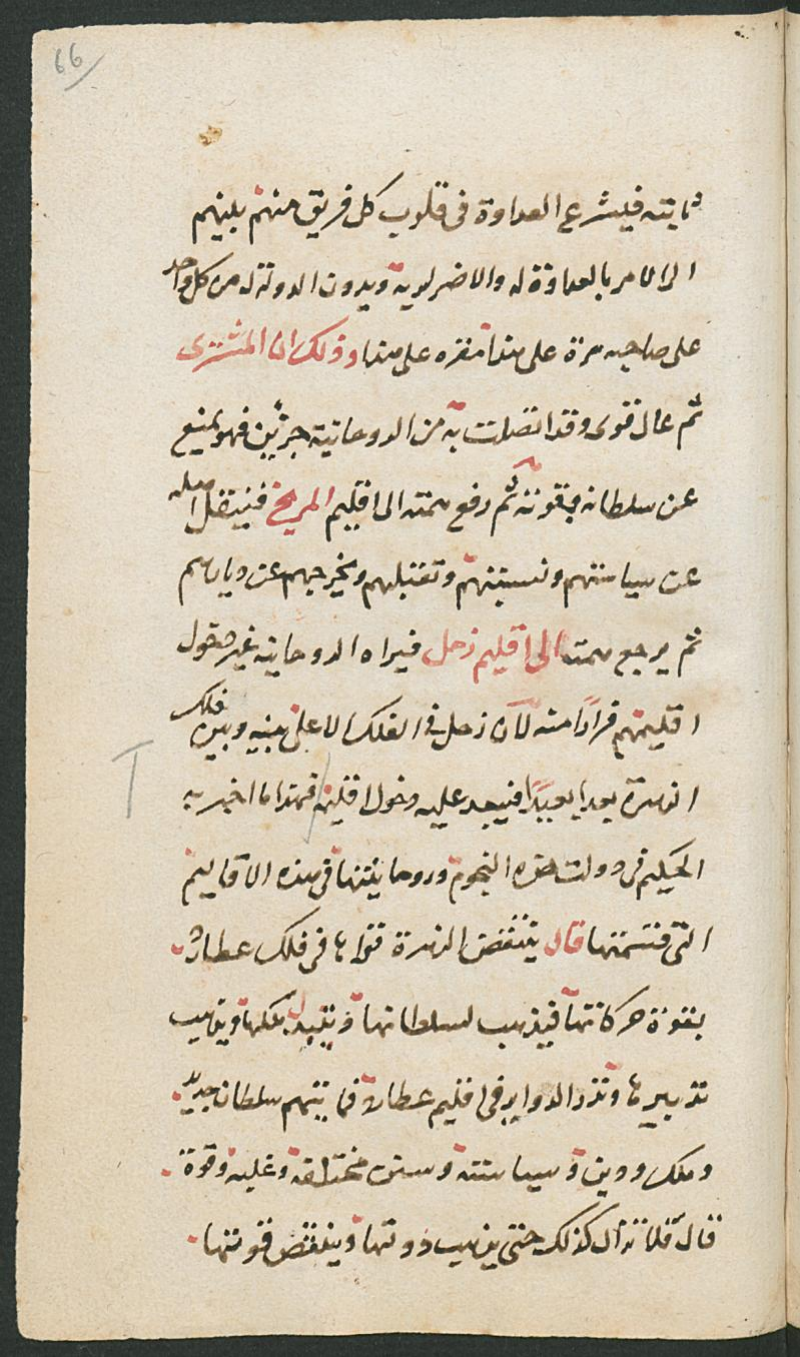 66
فيشرع العداوة فى قلوب كل فريق منهم بينهم
الى الامر بالعداوة له والاضر لويه ويدون الدولة له من كل واحد
على صاحبه مرة على هذا مقره على هذا وذلك ان المشترى
ثم عال قوى وقد اتصلت به من الروحانية جزئين فهو يمنع
عن سلطانه بقوته ثم رفع همته الى اقليم المريخ فينتقل اهله
عن سياستهم ونسبتهم وتقتلهم ويخرجهم عن ديارهم
ثم يرجع همته الى اقليم زحل فيراه الروحانية غير
اقليمهم فرارًا منه لان زحل فى الفلك الاعلى بينه وبين فلك
الزهرة بعدا بعيدًا فيبعد عليه دخول اقليمه فهذا ما اخبر به
الحكيم فى دولت هذه النجوم وروحانيتها فى هذه الاقاليم
التى قسمتها قال ينتقض الزهرة قواها فى فلك عطارد
بقوة حركاتها فيذهب لسلطانها ويتبدل ملكها ويذهب
تدبيرها وتزد الدواير فى اقليم عطارد فياتيهم سلطان جديد
وملك ودين وسياسته وسنن مختلفة وغلبه وقوة
قال فلا تزال كذلك حتى يذهب دولتها وينقض قوتها